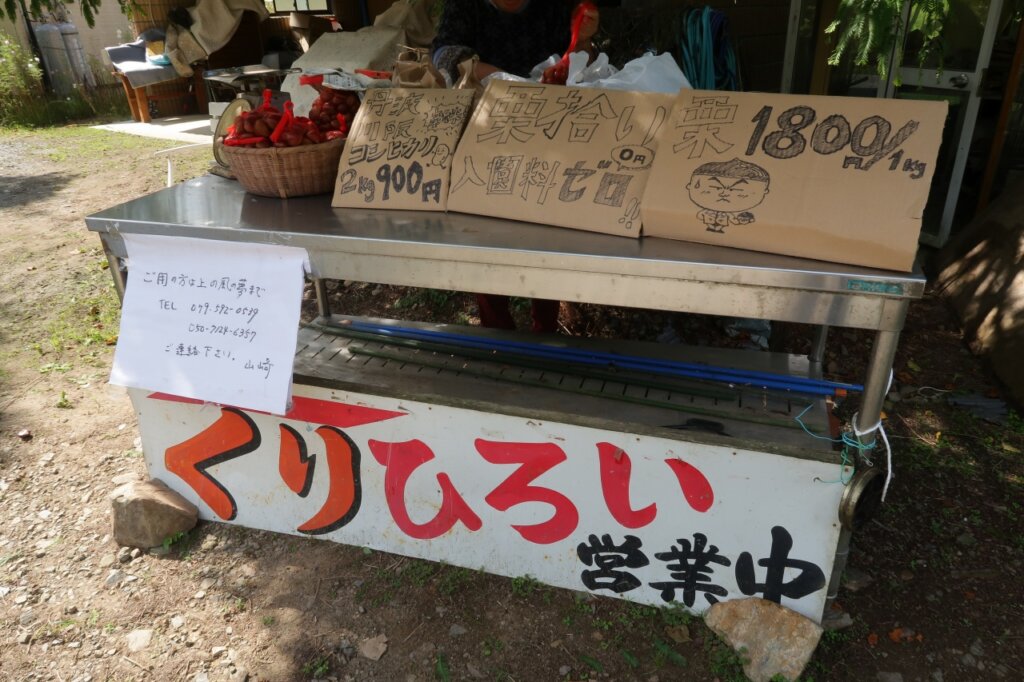 丹波
川阪
コシヒカリ
2kg 900円
栗拾い
0円
入園料ゼロ!!
栗 1800円/1kg
ご用の方は上の風の夢まで
TEL 079-592-0539
050-7124-6357
ご連絡下さい。 山崎
くりひろい
営業中